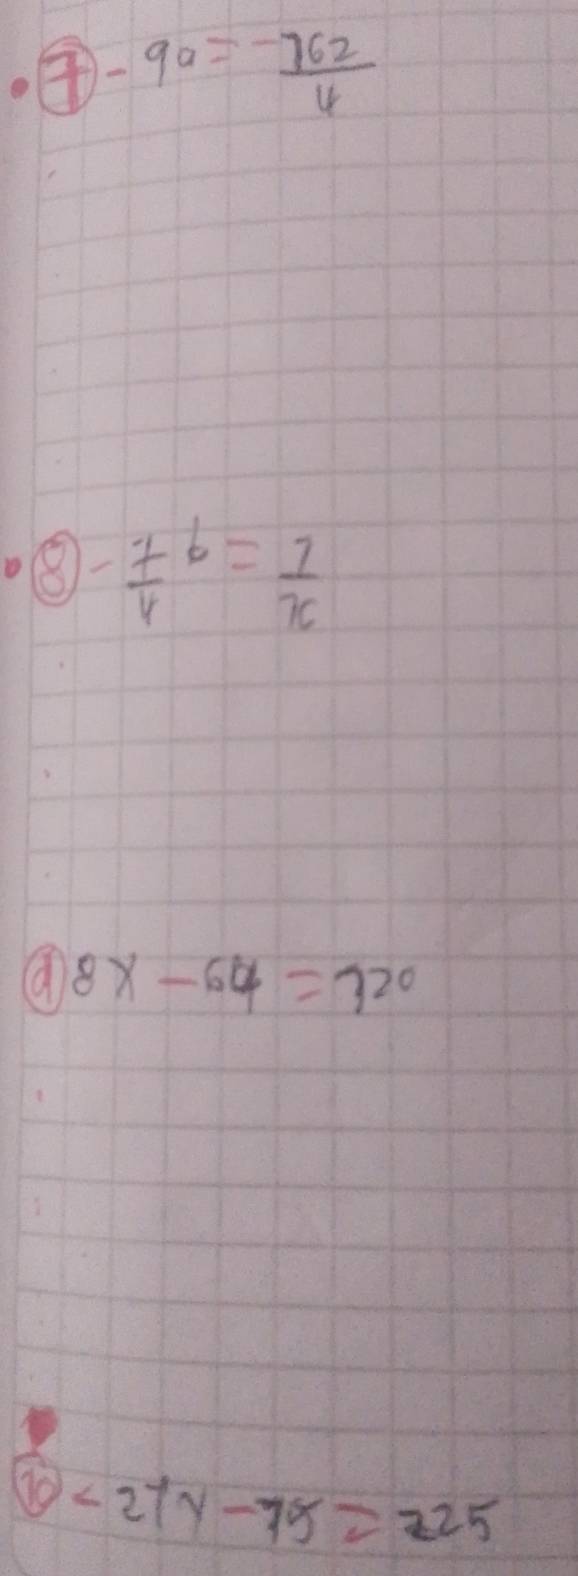 7 - 9a = -162/4
8 - 7/4 b = 1/16
9 8x - 64 = 120
10 - 27y - 75 = 225